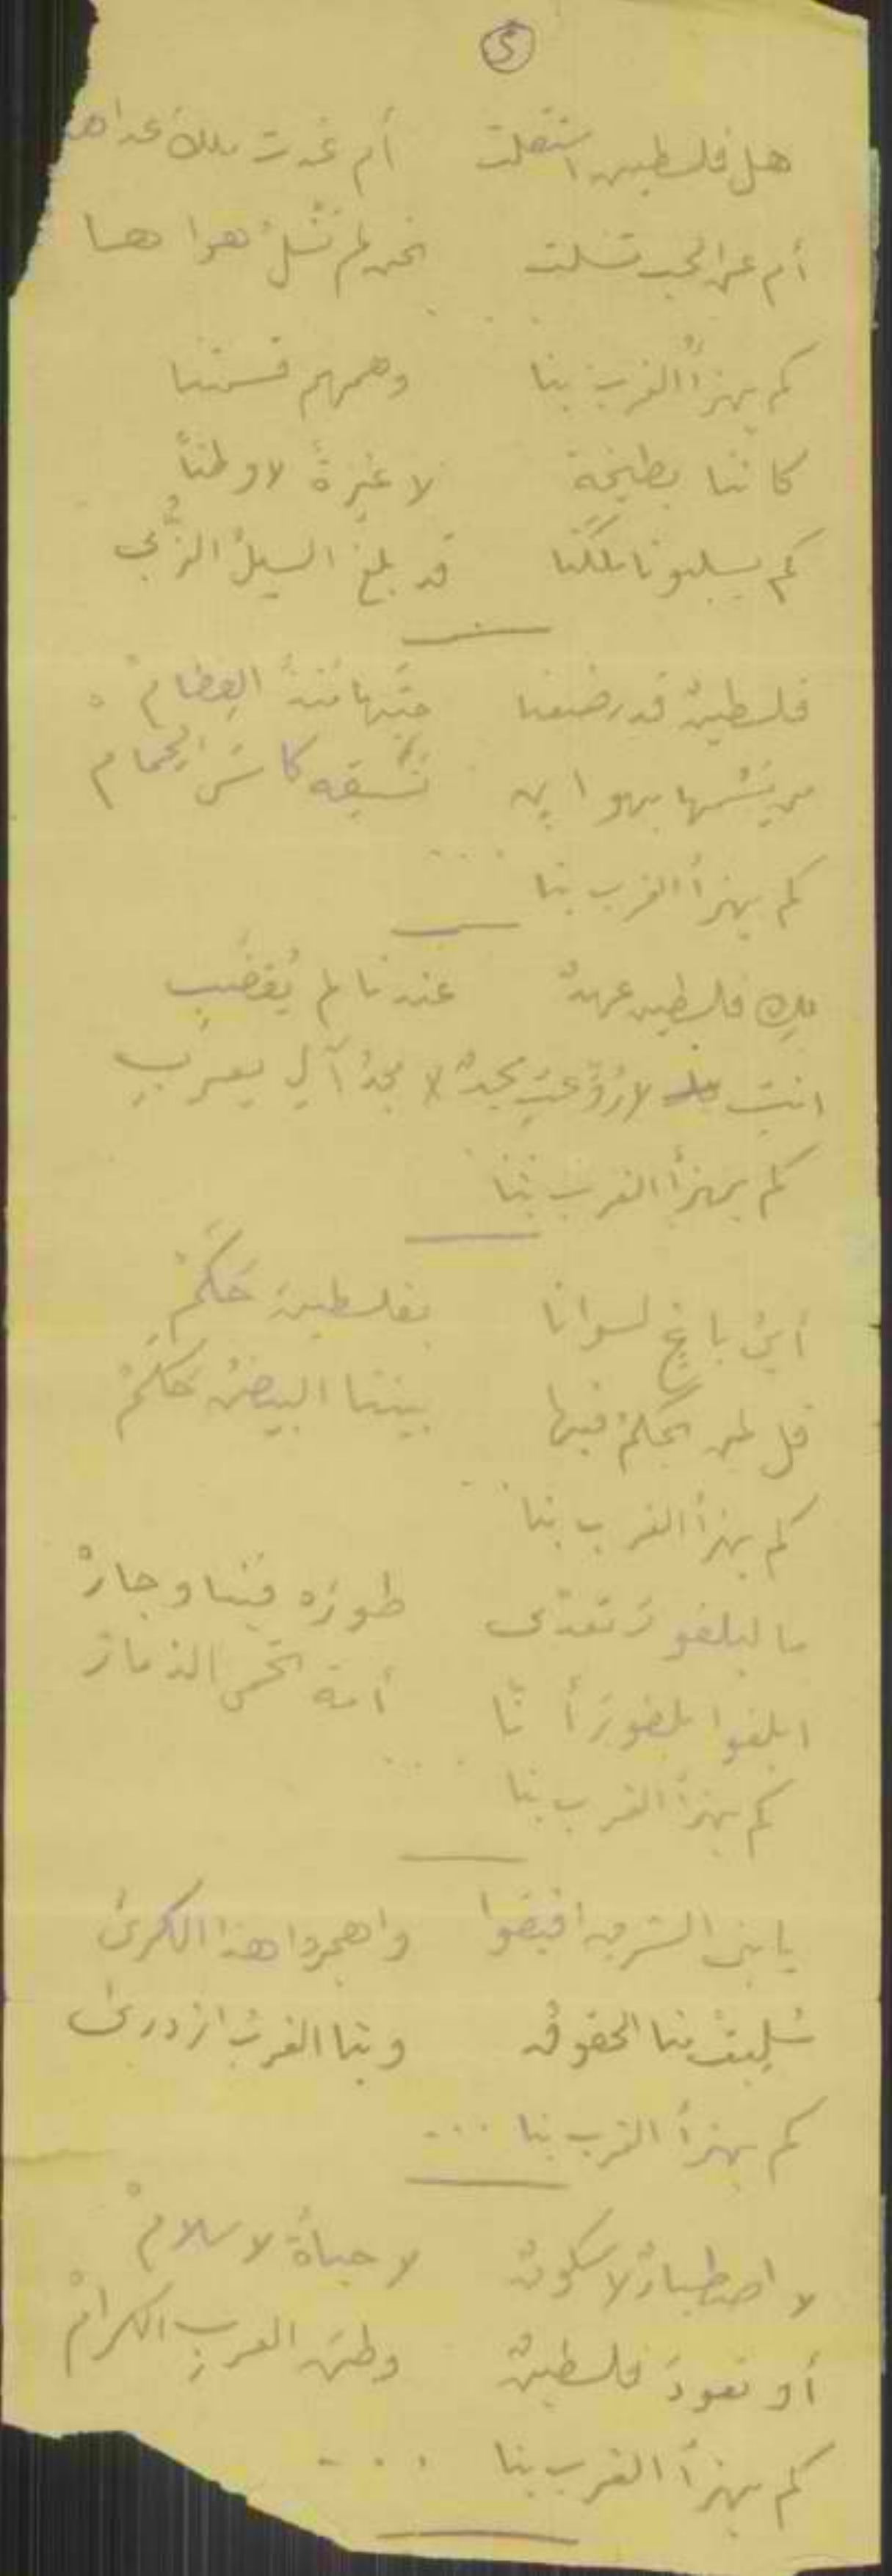 ٥
هل فلسطين استقلت أم غدت ملك عداها
أم عن الحب تسلت نحن لم نسلُ هواها
كم يهزأُ الغرب بنا وهمهم قسمتنا
كاننا بطيخة لا غيرةً لا وطناً
كم يسلبونا ملكنا قد بلغ السيلُ الزُّبى
فلسطينٌ قد رضعنا حبَّها منذُ الفطامْ
من يَسُمها بهوانٍ نَسقِه كاسَ الحِمام
كم يهزأُ الغرب بنا ...
لكِ فلسطين عهدٌ عندنا لم يُغضَبِ
انتِ لا رُوّعتِ مجدٌ لا مجدُ آلِ يعربِ
كم يهزأ الغرب بنا
أيُّ باغٍ لسوانا بفلسطينَ حَكَمْ
قل لمن يحكمُ فيها بيننا البيضُ حَكَمْ
كم يهزأ الغرب بنا ...
ما لبلفورَ تعدّى طورَه فينا وجارْ
ابلغوا بلفورَ أنّا أمة تحمى الذمارْ
كم يهزأ الغرب بنا ...
يا بنى الشرق افيقوا واهجروا هذا الكرى
سُلِبتْ منا الحقوقُ وبنا الغربُ ازدرى
كم يهزأ الغرب بنا ...
لا اصطبارٌ لا سكونٌ لا حياةٌ لا سلامْ
أو تعودَ فلسطينٌ وطنَ العربِ الكرامْ
كم يهزأ الغرب بنا ...